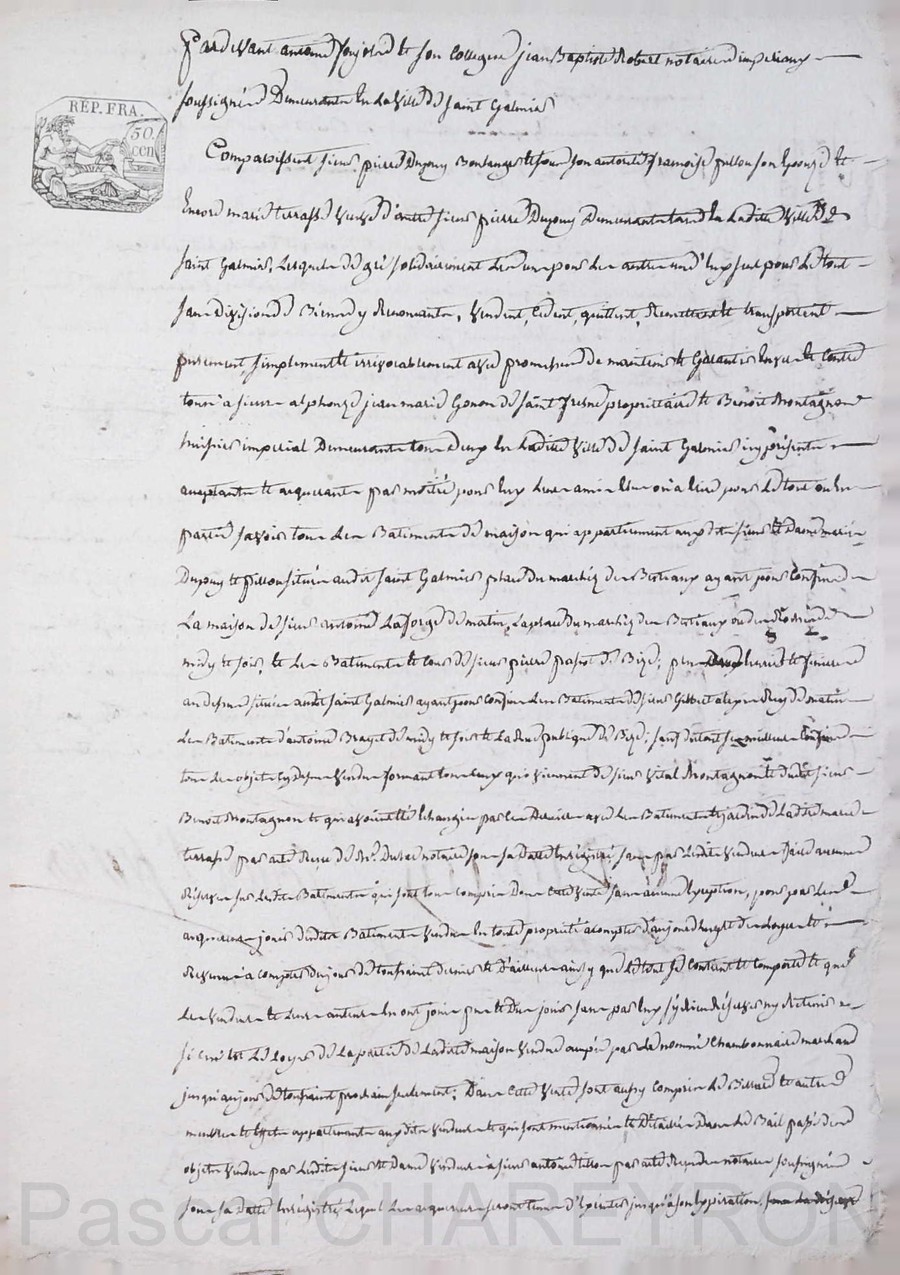 RÉP. FRA.
50
cen
Pardevant antoine et son collegue jean Baptiste Robert notaires imperiaux
soussignés Demeurants En La Ville De saint Galmier
Comparoissent sieur pierre Dupuy Boulanger et sous son autorité françoise fillon son Epouze et
Encore marie terrasse veuve d'autre sieur pierre Dupuy Demeurants tous En Ladite Ville De
saint Galmier, Lesquels De gré solidairement Les uns pour Les autres un d'Eux seul pour Le tout
sans division De Bien y Renonçants, Vendent, cedent, quittent, Remettent et transportent
purement simplement et irrévocablement avec promesse De maintenir et Garantir Envers et Contre
tous à sieurs alphonze jean marie Genon De saint fresne propriétaire et Benoit Montagnon
huissier impérial Demeurants tous Deux En Ladite Ville De saint Galmier icy présents
acceptants et acquerants par moitié pour Eux Leurs amis Elus ou à Elire pour Le tout ou En
partie savoir tous Les Batiments De maison qui appartiennent auxdits sieur et Dame marie
Dupuy et fillon situés audit saint Galmier place du marché des Bestiaux ayant pour Confins
La maison De sieur antoine Laforge De matin, La place du marché des Bestiaux
midy et soir, et Les Batiments et cour De sieur pierre De Bize;
au dessus située audit saint Galmier ayant pour Confins Les Batiments De sieur Gilbert De matin
Les Batiments d'antoine De midy et soir et La Rue publique De Bize; sauf de tout meilleurs Confins
tous Les objets cy dessus vendus formant tous Ceux qui viennent De sieur Vital Montagnon et dudit sieur
Benoit Montagnon et qui avoient été Echangés par Ce Dernier avec Les Batiments et jardin De Ladite marie
terrasse par acte Reçu De Me. notaire sous sa Datte Enregistré, sans par Lesdits vendeurs faire aucune
Réserve sur Lesdits Batiments qui sont tous compris Dans Cette Vente sans aucune Exception, pour par Les
acquereurs jouir desdits Batiments vendus En toute propriété à compter d'aujourd'huy et des Loyers et
Revenus à compter du jour De toussaint Dernier et D'ailleurs ainsy que Le tout se Contient et Comporte et que
Les vendeurs et Leurs auteurs En ont joui pu et Du jouir sans par Eux s'y rien Réserver ny Retenir
si Ce n'est Le Loyer De La partie De Ladite maison vendue occupée par Le nommé Chambonnaire marchand
jusqu'au jour De toussaint prochain seulement; Dans Cette Vente sont aussy Compris Le Billard et autres
meubles et Effets appartenants auxdits vendeurs et qui sont mentionnés et Détaillés Dans Le Bail passé des
objets vendus par Lesdits sieur et Dame Vendeurs à sieur antoine par acte Reçu des notaires soussignés
sous sa Datte Enregistré, Lequel Les acquereurs seront tenus d'Exécuter jusqu'à son Expiration
Pascal CHAREYRON